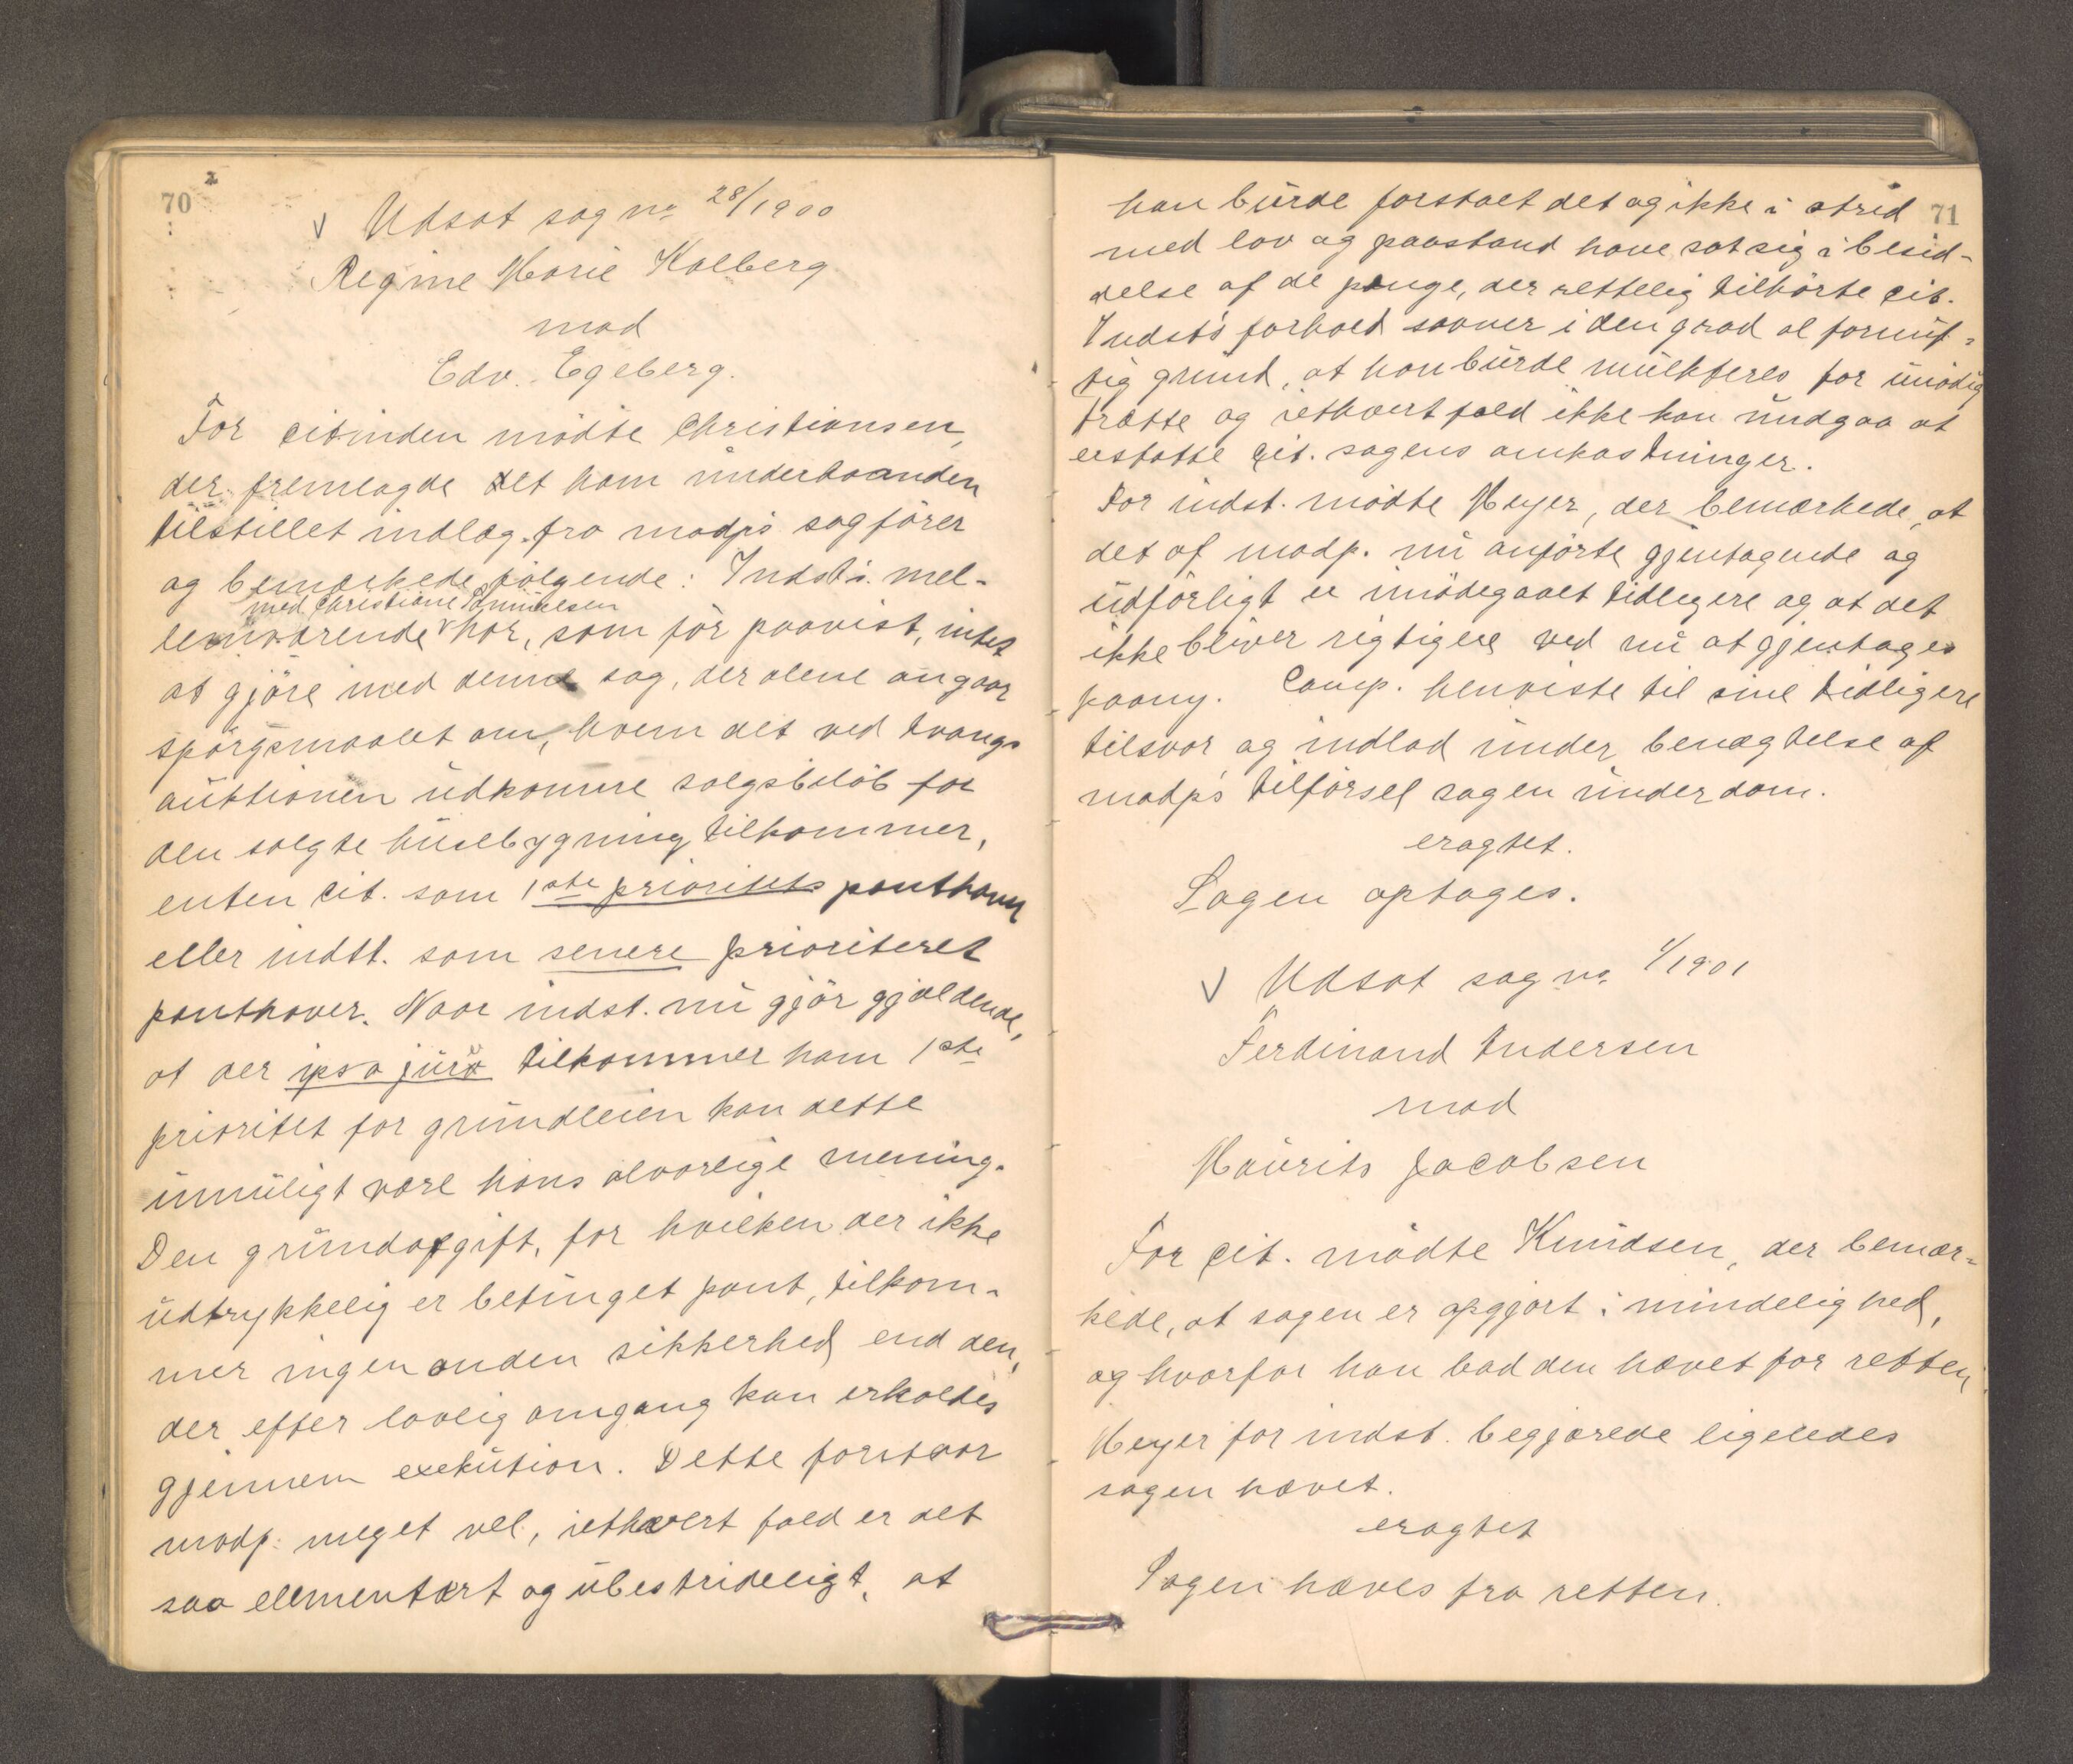 70
2
Udsat sag no 28/1900
Regine Marie Kolberg
mod
Edv. Egeberg.
For citinden mødte Christiansen,
der fremlagde det ham underhaanden
tilstillet indlæg fra modp's sagfører
og bemærkede følgende: Indst's. mel-
med Christiane Samuelsen
lemværende har, som før paavist, intet
at gjøre med denne sag, der alene angaar
spørgsmaalet om, hvem det ved tvangs
auktionen udkomne salgsbeløb for
den solgte husebygning tilkommer,
enten cit. som 1ste prioritets panthaver
eller indst. som senere prioriteret
panthaver. Naar indst. nu gjør gjældende,
at der ipso jure tilkommer ham 1ste
prioritet for grundleien kan dette
umuligt være hans alvorlige mening.
Den grundafgift, for hvilken der ikke
udtrykkelig er betinget pant, tilkom-
mer ingen anden sikkerhed end den,
der efter lovlig omgang kan erholdes
gjennem exekution. Dette forstaar
modp. meget vel, iethvert fald er det
saa elementært og ubestrideligt, at
71
han burde forstaaet det og ikke i strid
med lov og paastand have sat sig i besid-
delse af de penge, der rettelig tilhørte cit.
Indst's forhold savner i den grad al fornuf-
tig grund, at han burde mulkteres for unødig
trætte og iethvert fald ikke kan undgaa at
erstatte cit. sagens omkostninger.
For indst. mødte Meyer, der bemærkede, at
det af modp. nu anførte gjentagende og
udførligt er imødegaaet tidligere og at det
ikke bliver rigtigere ved nu at gjentages
paany. Comp. henviste til sine tidligere
tilsvar og indlod under benægtelse af
modp's tilførsel sagen under dom.
eragtet.
Sagen optages.
Udsat sag no 1/1901
Ferdinand Andersen
mod
Mauritz Jacobsen
For cit. mødte Knudsen, der bemær-
kede, at sagen er opgjort i mindelighed,
og hvorfor han bad den hævet for retten,
Meyer for indst. begjærede ligeledes
sagen hævet.
eragtet
Sagen hæves fra retten.